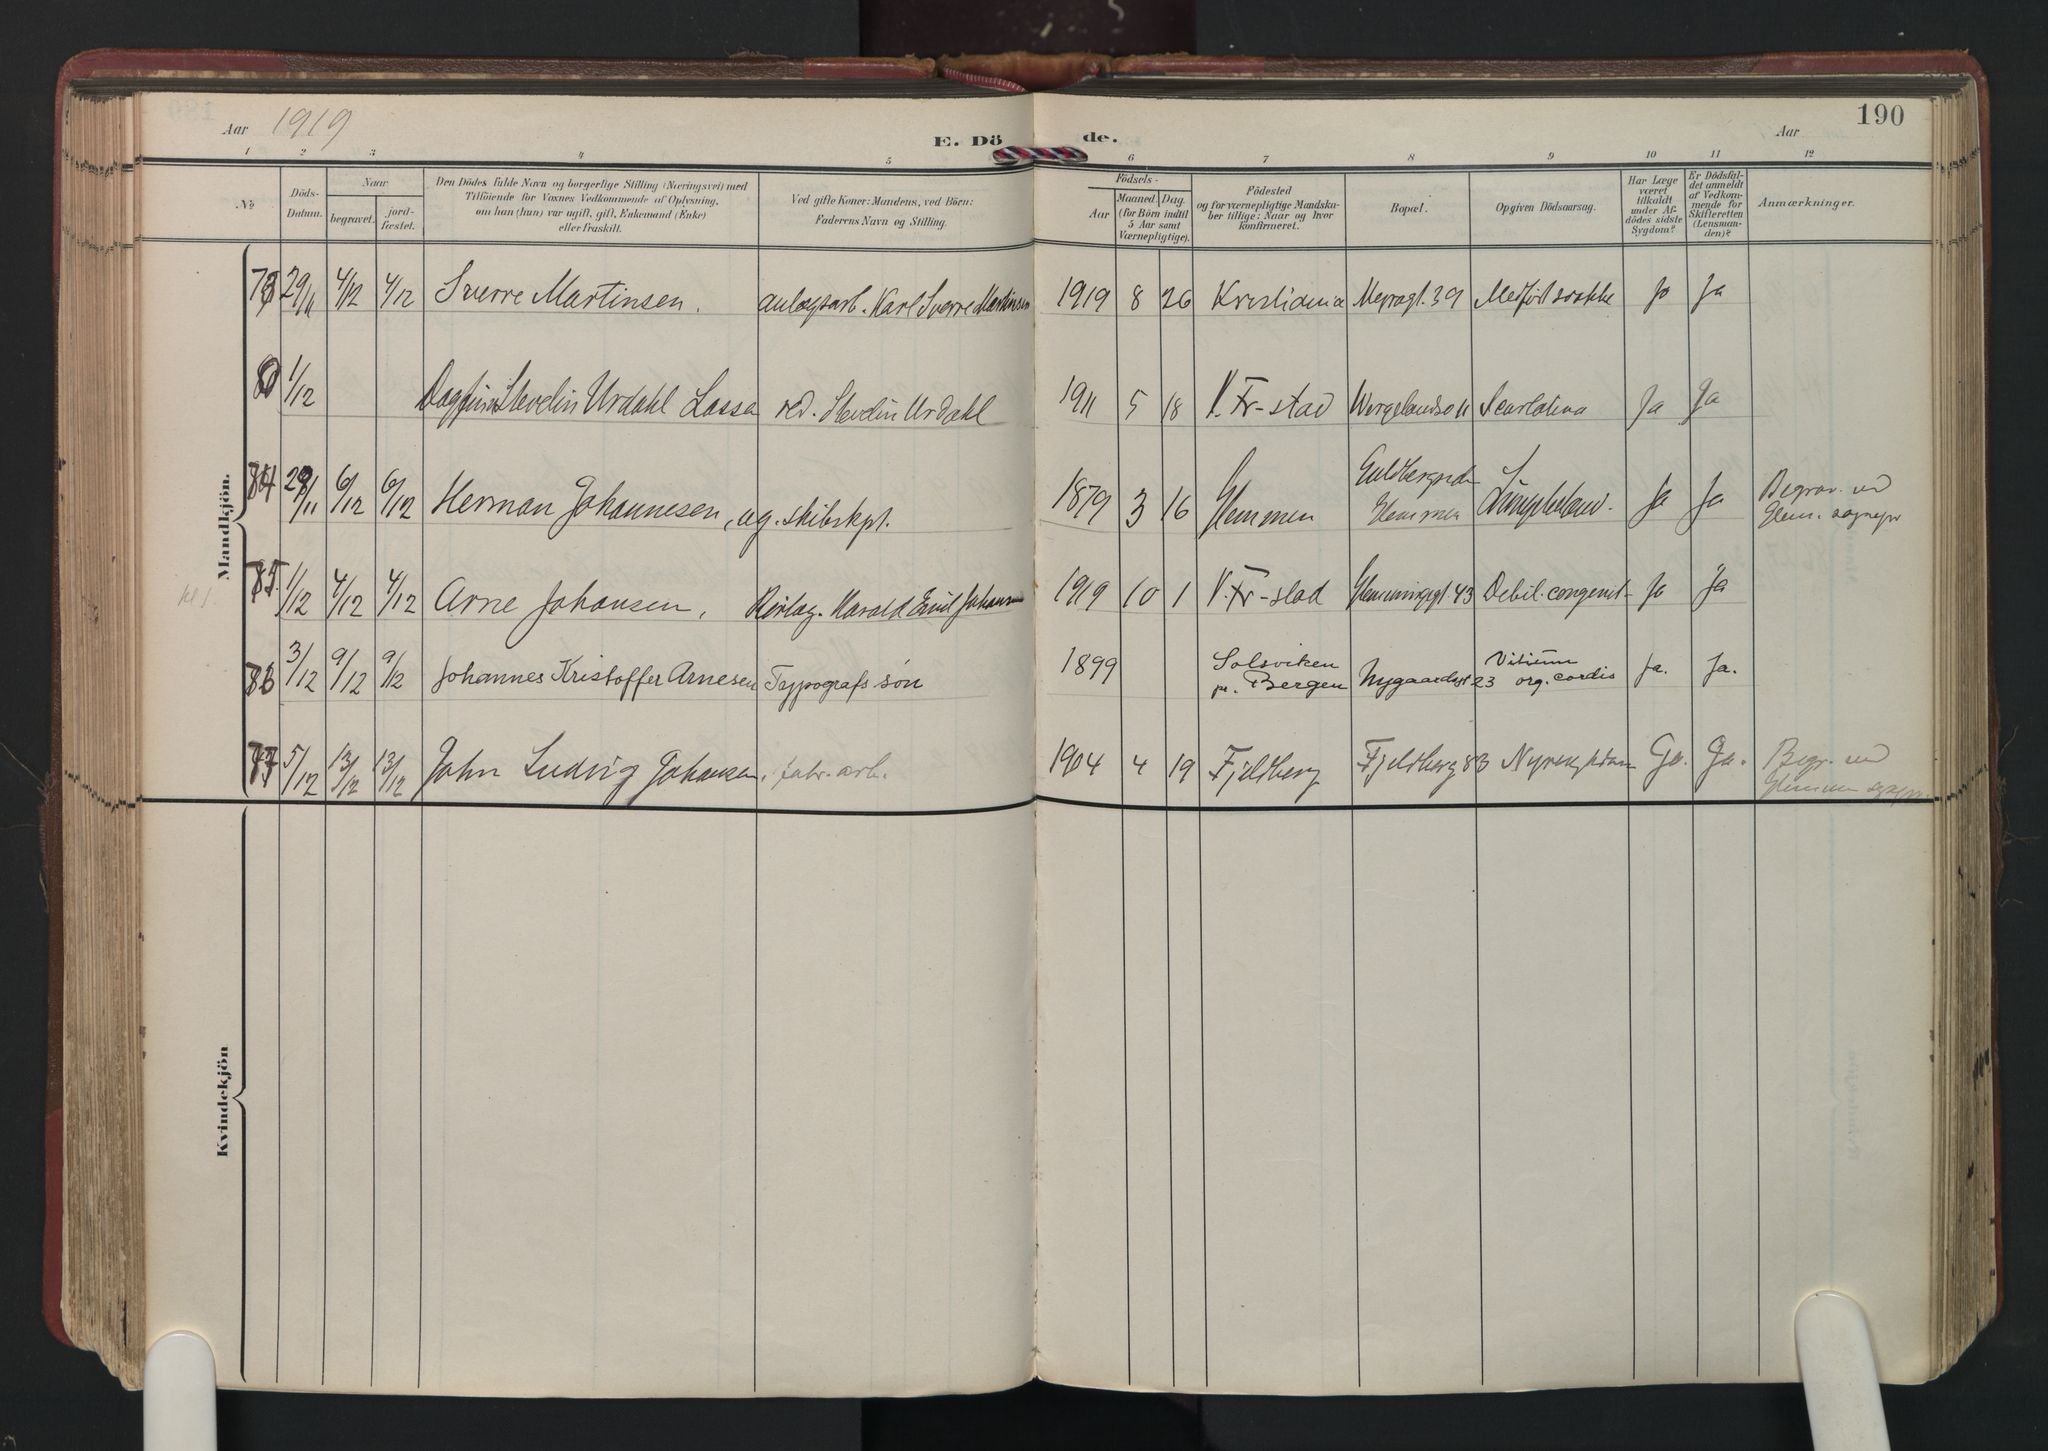 190
Aar 1919
E. Dö de.
Aar
1 2 3 4 5 6 7 8 9 10 11 12
No
Döds-
Datum.
Naar
begravet.
jord-
fæstet.
Den Dödes fulde Navn og borgerlige Stilling (Næringsvei) med
Tilföiende for Voxnes Vedkommende af Oplysning,
om han (hun) var ugift, gift, Enkemand (Enke)
eller fraskilt.
Ved gifte Koner: Mandens, ved Börn:
Faderens Navn og Stilling.
Födsels-
Aar
Maaned. Dag.
(for Börn indtil
5 Aar samt
Værnepligtige).
Födested
og for værnepligtige Mandsku-
ber tillige: Naar og hvor
konfirmeret.
Bopæl.
Opgiven Dödsaarsag.
Har Læge
været
tilkaldt
under Af-
dödes sidste
Sygdom?
Er Dödsfal-
det anmeldt
af Vedkom-
mende for
Skifteretten
(Lensman-
den)?
Anmærkninger.
Mandkjön.
29/11 4/12 4/12 Sverre Martinsen. anlægsarb. Karl Sverre Martinsen 1919 8 26 Kristiania 39 Medfödt svakhe Ja Ja
1/12 Dagfinn Stevelin Urdahl Lassa red. Stevelin Urdahl 1911 5 18 V. Fr-stad Scarlatina Ja Ja
6/12 6/12 Herman Johannesen, ug. skibskpt. 1879 3 16 Glemmen Glemmen Ja Ja Begrav. ved
Glem. sognepr
1/12 4/12 4/12 Arne Johansen, Rörlæg. Harald Emil Johansen 1919 10 1 V. Fr-stad Glemmingegt. 43 Debil. congenit. Ja Ja
86 3/12 9/12 9/12 Johannes Kristoffer Arnesen Typografs sön 1899 Solsviken
pr. Bergen Nygaardsgt 23 Vitium
org. cordis Ja. Ja.
5/12 13/12 13/12 John Ludvig Johansen, fabr. arb. 1904 4 19 Fjeldberg Fjeldberg 83 Ja. Ja. Begr. ved
Glemmen sognepr.
Kvindekjön